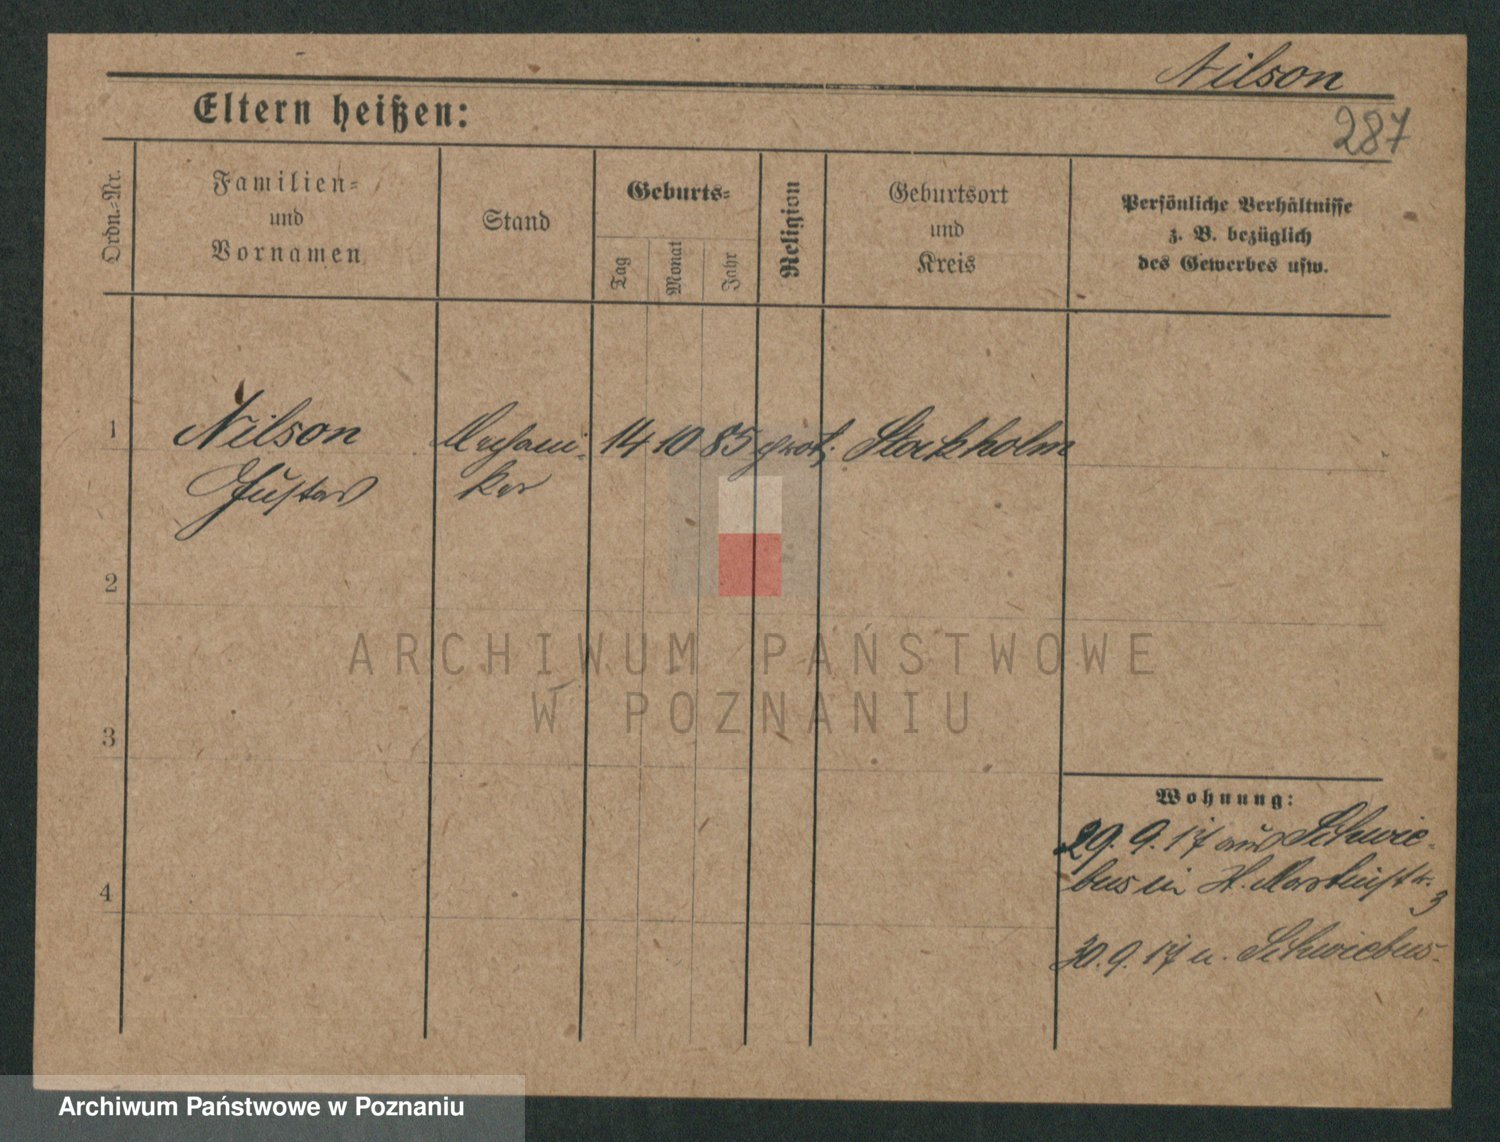 Nilson
287
Eltern heißen:
Ordn.-Nr.
Familien-
und
Vornamen
Stand
Geburts-
Tag
Monat
Jahr
Religion
Geburtsort
und
Kreis
Persönliche Verhältnisse
z. B. bezüglich
des Gewerbes usw.
1
Nilson
Gustav
Mechani-
ker
14 10 85 prot. Stockholm
2
3
4
Wohnung:
29. 9. 17 aus Schwie-
bus in St. Martinstr.
3
30. 9. 17 n. Schwiebus.
ARCHIWUM PAŃSTWOWE
W POZNANIU
Archiwum Państwowe w Poznaniu